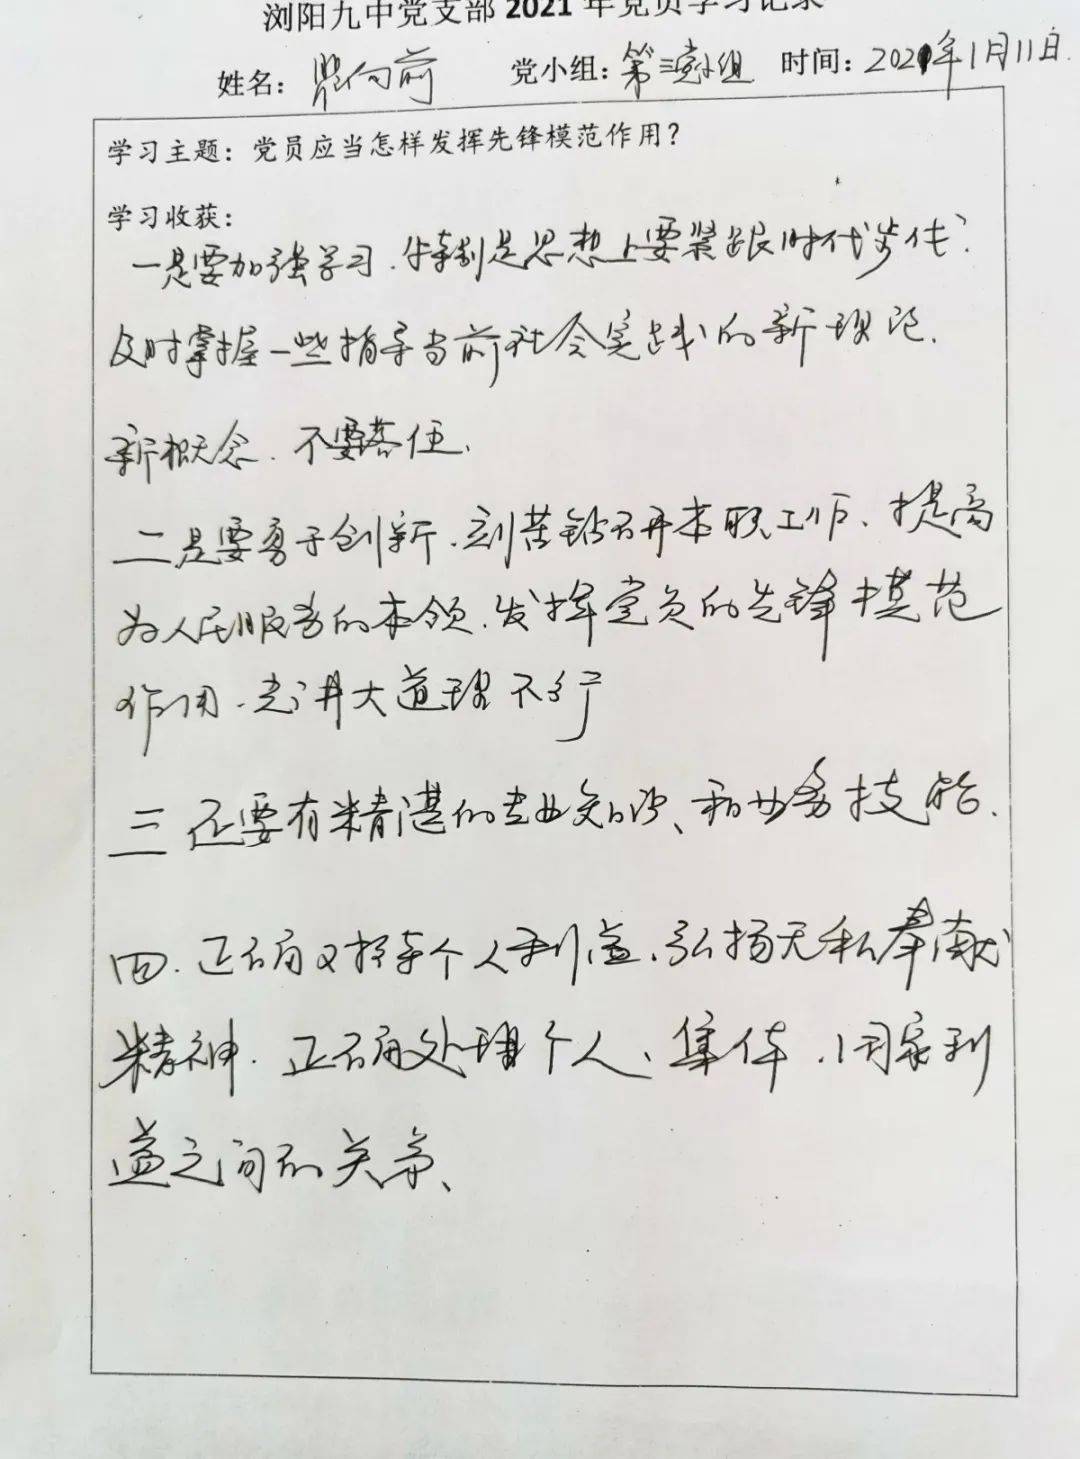 浏阳九中党支部 2021 年党员学习记录
姓名：向前 党小组：第三党小组 时间：2021年1月11日.
学习主题：党员应当怎样发挥先锋模范作用？
学习收获：
一是要加强学习.特别是思想上要紧跟时代步伐.
及时掌握一些指导当前社会实践的新理论.
新概念.不要落伍.
二是要勇于创新.刻苦钻研本职工作、提高
为人民服务的本领.发挥党员的先锋模范
作用.光讲大道理不行
三 还要有精湛的专业知识、和业务技能.
四.正确对待个人利益.弘扬无私奉献
精神.正确处理个人、集体.国家利
益之间的关系、